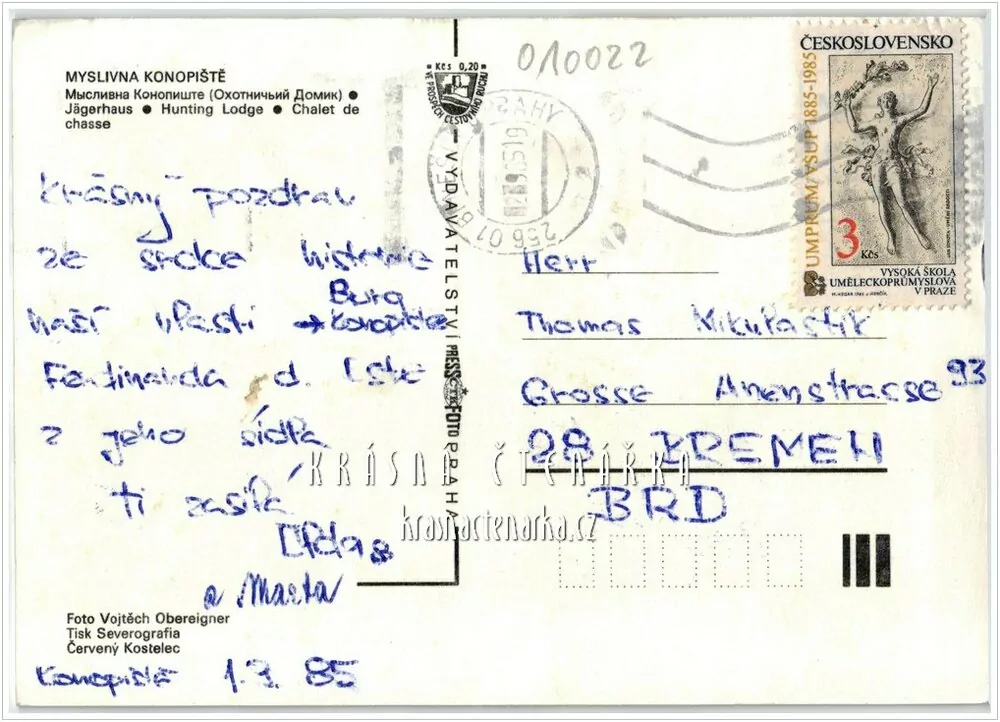 MYSLIVNA KONOPIŠTĚ
Мысливна Конопиште (Охотничьий Домик) ●
Jägerhaus ● Hunting Lodge ● Chalet de
chasse
Krásný pozdrav
ze srdce historie
naší vlasti → Burg
Konopiště
Ferdinanda d. Este
z jeho sídla
ti zasílá
a Marta
Foto Vojtěch Obereigner
Tisk Severografia
Červený Kostelec
Konopiště 1.9. 85
Kčs 0,20
VE PROSPĚCH CESTOVNÍHO RUCHU
VYDAVATELSTVÍ PRESSFOTO PRAHA
010022
256 01
ČESKOSLOVENSKO
UMPRUM/VŠUP 1885-1985
3 Kčs
VYSOKÁ ŠKOLA
UMĚLECKOPRŮMYSLOVÁ
V PRAZE
Herr
Thomas Mikulastik
Grosse Anenstrasse 93
28 BREMEN
BRD
KRÁSNÁ ČTENÁŘKA
krasnactenarka.cz